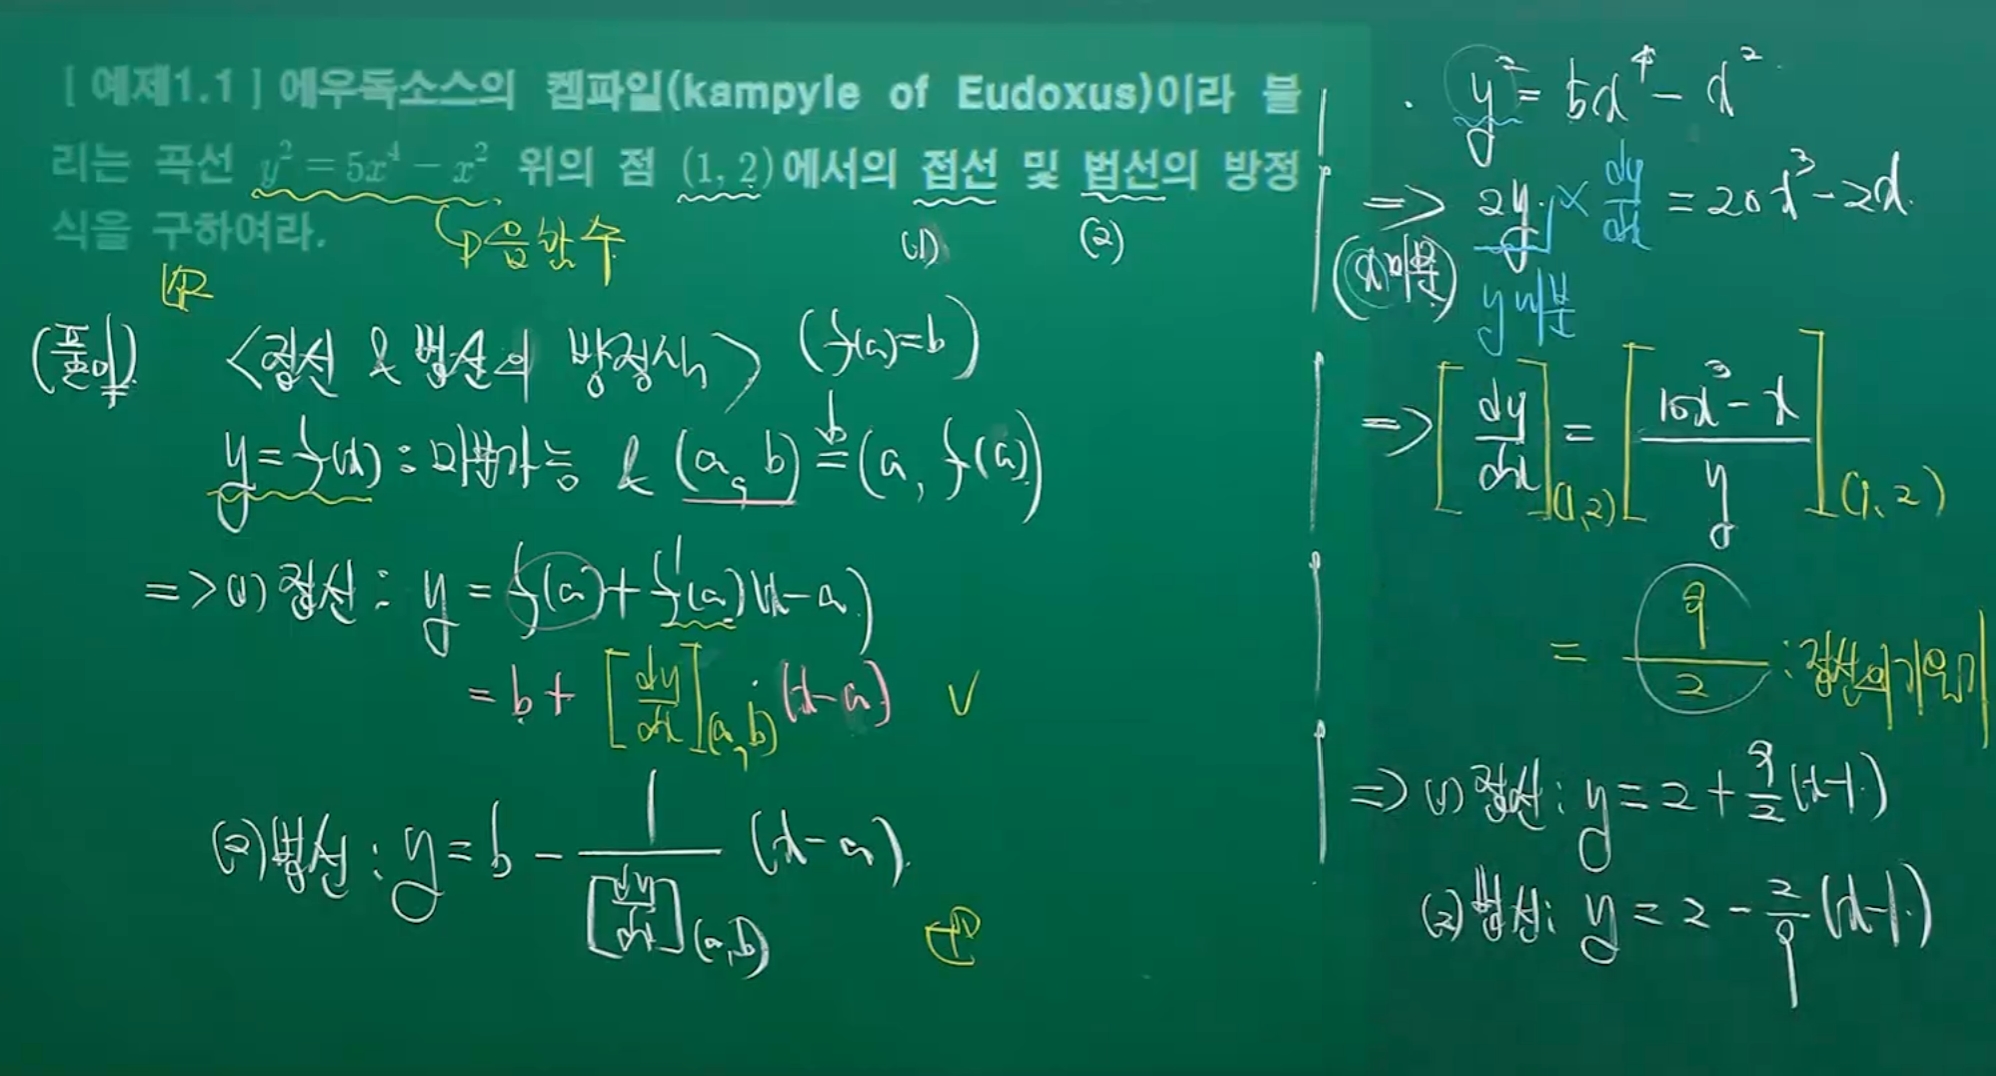 [ 예제1.1 ] 에우독소스의 켐파일(kampyle of Eudoxus)이라 불
리는 곡선 y² = 5x⁴ − x² 위의 점 (1, 2)에서의 접선 및 법선의 방정
식을 구하여라.
음함수
(1) (2)
(풀이)
<접선 & 법선의 방정식> (f(a)=b)
y = f(x) : 미분가능 & (a, b) = (a, f(a))
=> (1) 접선 : y = f(a) + f'(a)(x-a)
= b + [dy/dx](a, b) · (x-a)
(2) 법선 : y = b - 1/[dy/dx](a,b) (x-a)
y² = 5x⁴ - x²
=> 2y × dy/dx = 20x³ - 2x
(x미분) y미분
=> [dy/dx](1,2) = [(10x³ - x)/y](1, 2)
= 9/2 : 접선의 기울기
=> (1) 접선 : y = 2 + 9/2 (x-1)
(2) 법선 : y = 2 - 2/9 (x-1)